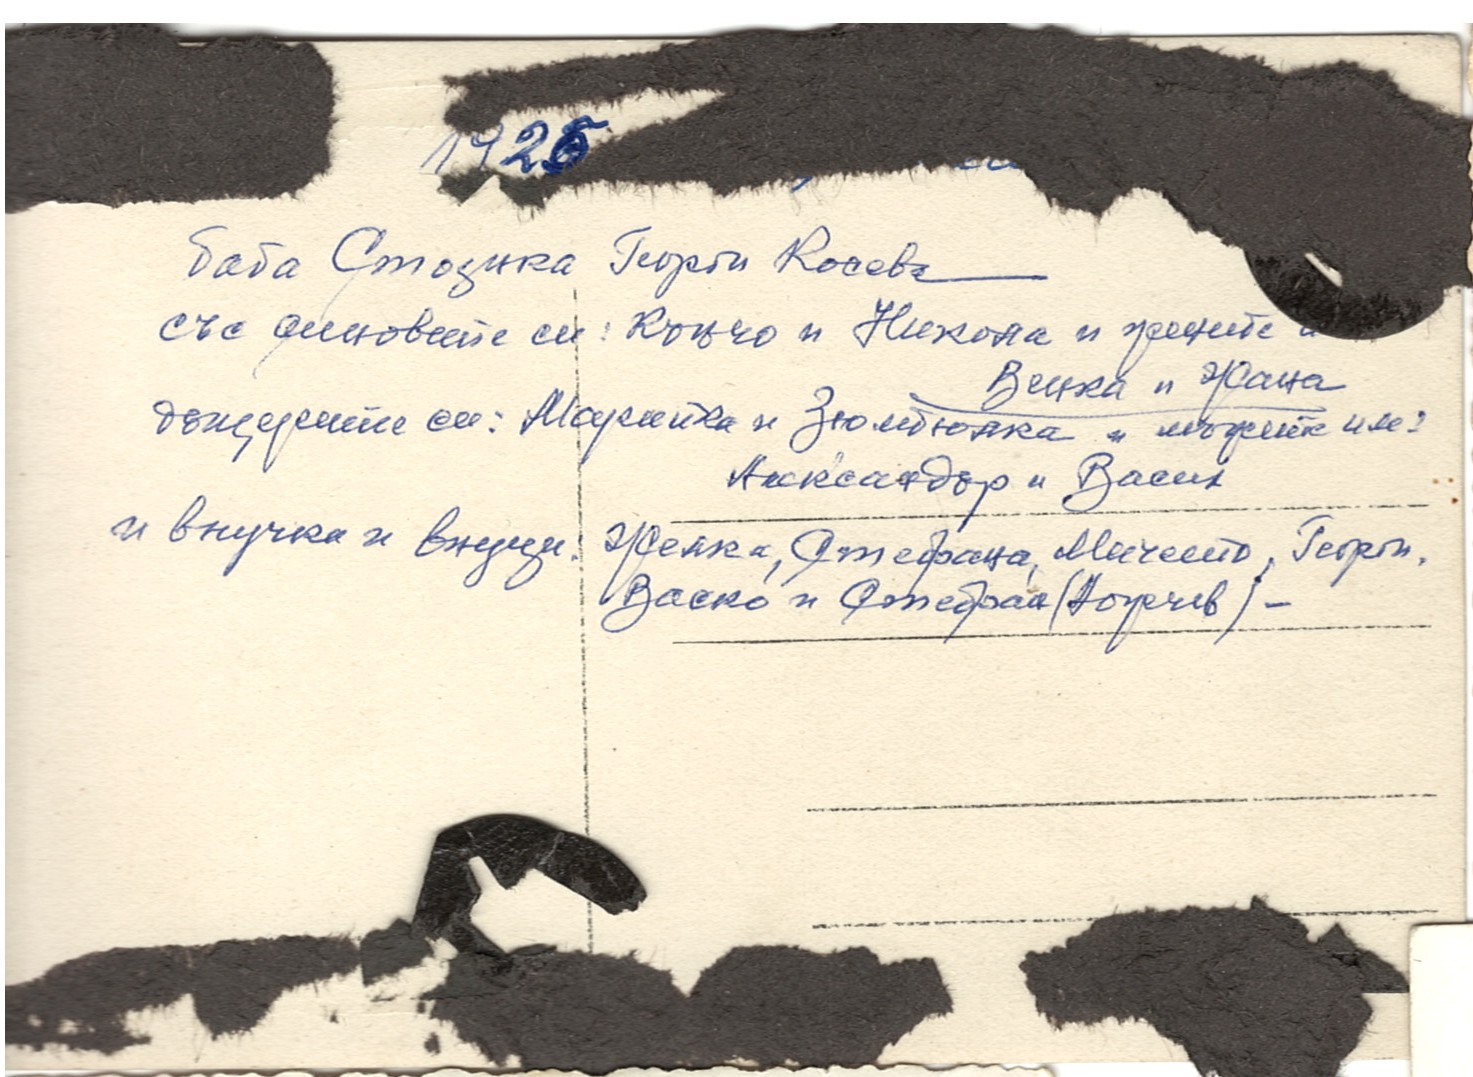 1925
баба Стоянка Георги Косева
със синовете си: Кънчо и Никола и жените
Венка и Жана
дъщерите си: Марийка и Зюмбюлка и мъжете им:
Александър и Васил
и внучка и внуци: Желка, Стефана, Мичето, Георги,
Васко и Стефан ( ) –